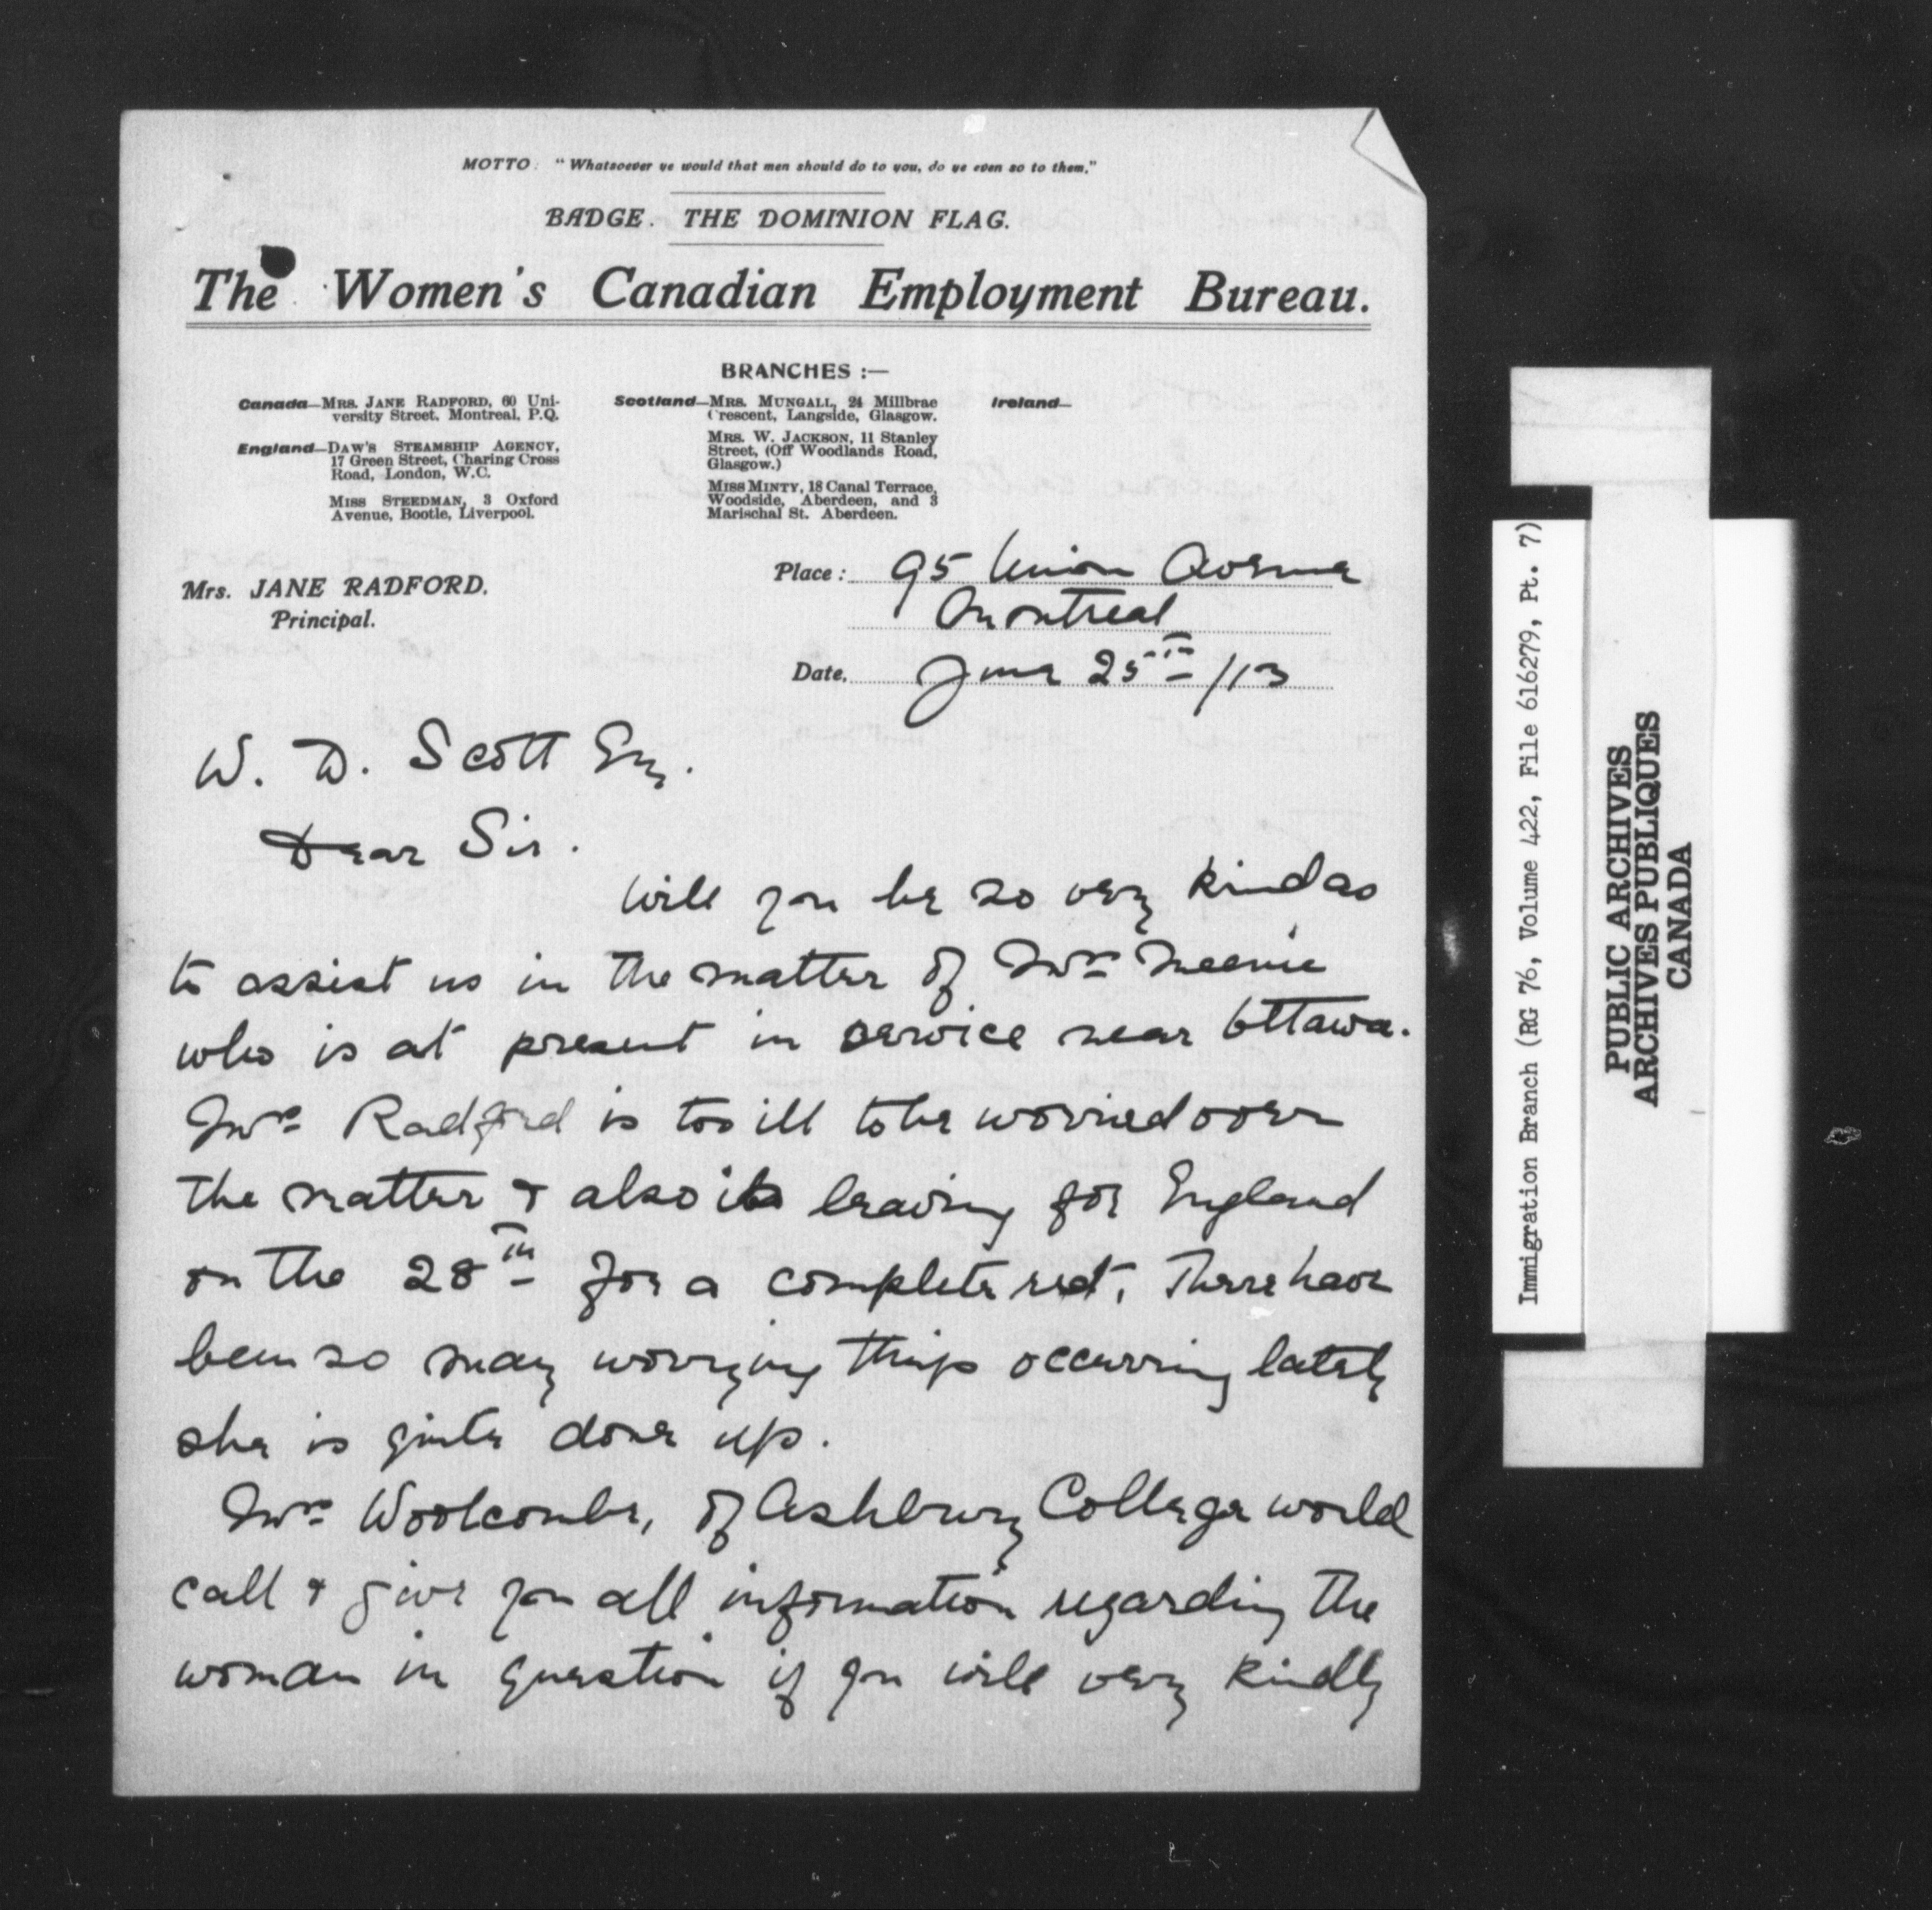 MOTTO. "Whatsoever ye would that men should do to you, do ye even so to them."
BADGE. THE DOMINION FLAG.
The Women's Canadian Employment Bureau.
BRANCHES :—
Canada—MRS. JANE RADFORD, 60 Uni-
versity Street, Montreal, P.Q.
England—DAW'S STEAMSHIP AGENCY,
17 Green Street, Charing Cross
Road, London, W.C.
MISS STEEDMAN, 3 Oxford
Avenue, Bootle, Liverpool.
Scotland—MRS. MUNGALL, 24 Millbrae
Crescent, Langside, Glasgow.
MRS. W. JACKSON, 11 Stanley
Street, (Off Woodlands Road,
Glasgow.)
MISS MINTY, 18 Canal Terrace,
Woodside, Aberdeen, and 3
Marischal St. Aberdeen.
Ireland—
Mrs. JANE RADFORD.
Principal.
Place: 95 Union Avenue
Montreal
Date, June 25th /13
W. D. Scott Esq.
Dear Sir.
Will you be so very kind as
to assist us in the matter of Mrs
who is at present in service near Ottawa.
Mrs Radford is too ill to be worried over
the matter & also is leaving for England
on the 28th for a complete rest. There have
been so many worrying things occurring lately
she is quite done up.
Mrs Woolcombe, of Ashbury College would
call & give you all information regarding the
woman in question if you will very kindly
Immigration Branch (RG 76, Volume 422, File 616279, Pt. 7)
PUBLIC ARCHIVES
ARCHIVES PUBLIQUES
CANADA